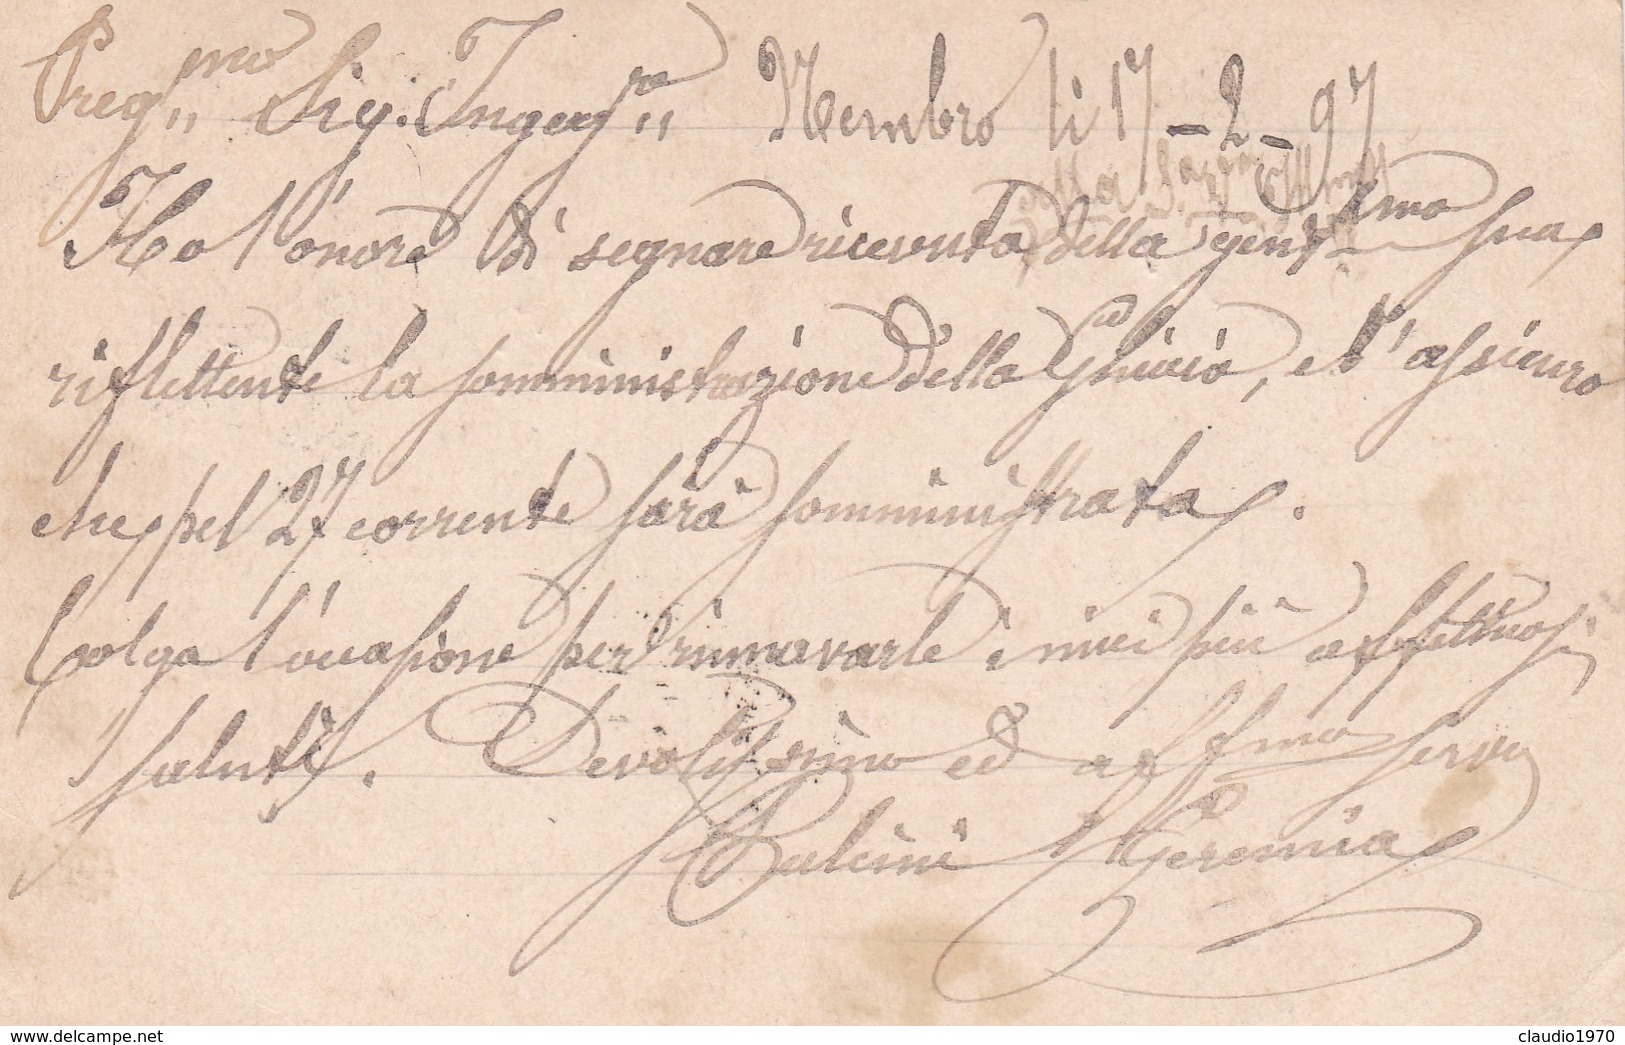 Preg.mo Sig. Ingeg.re Nembro li 17-2-97
Ho l'onore di segnare ricevuta della gent.ma sua
riflettente la somministrazione della Ghiaia, e l'assicuro
che pel 27 corrente sarà somministrata.
Colgo l'ocasione per rinnovarle i miei più affettuosi
saluti. Devotissimo ed aff.mo servo
Geremia
delcampe.net
claudio1970